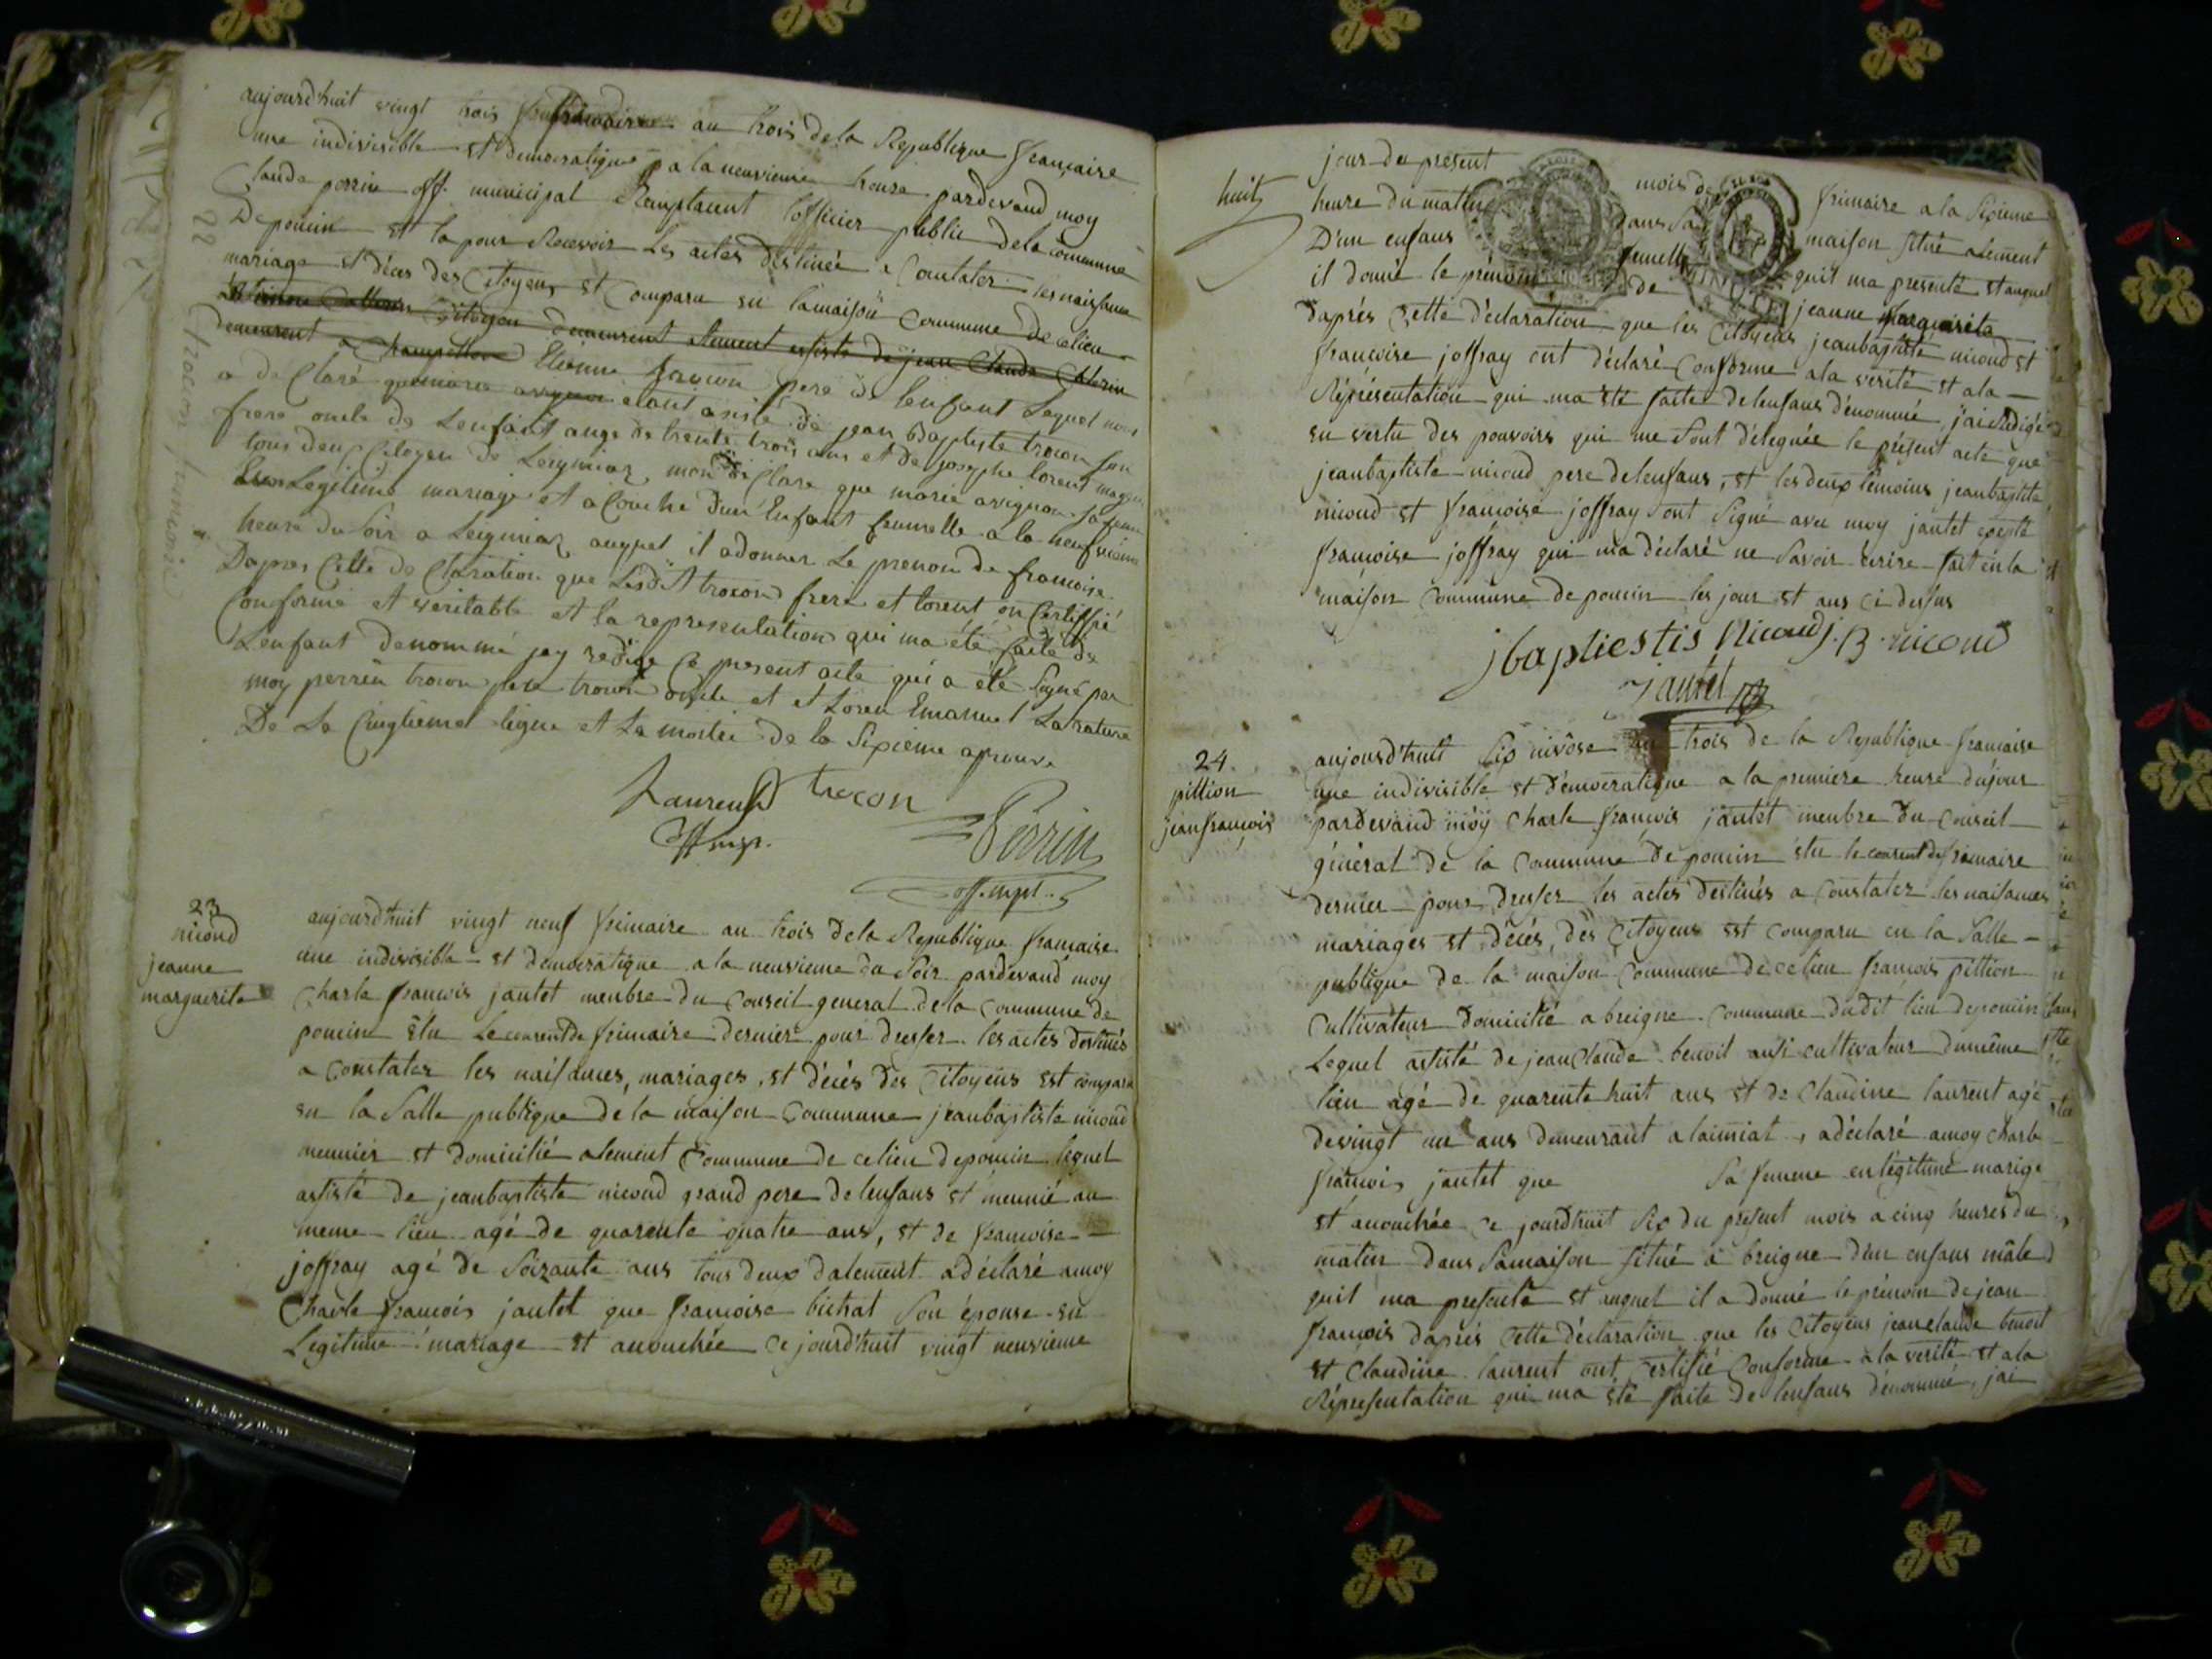 aujourd'huit vingt trois frimaire an trois de la Republique française
une indivisible et democratique a la neuvieme heure pardevand moy
Claude perrin off. municipal Remplacent l'officier public de la commune
De poncin et la pour Recevoir les actes destinée a Contater les naissance
mariage et déces des Citoyens et Comparu en la maison Commune de celieu
Citoyen demeurent alement assisté de jean Claude
demeurent a Etienne trocon pere de l'enfant Lequel nous
a de Claré que marie avignon etant asisté de jean Baptiste trocon son
frere oncle de L'enfant auge de trente trois ans et de josephe lorent
tous deux Citoyen de Leymiaz mon de Clare que marie avignon sa femme
En Legitime mariage et a Couche d'un Enfant femelle a la neufvieme
heure du soir a Leigniaz auquel il adonner Le prenon de francoise
Dapres Cette de Claration que Lesdit trocon frere et lorent on Certiffié
Conforme et veritable et la representation qui ma été faite de
L'enfant denommé jey redige Ce present acte qui a été signé par
moy perrin trocon pere trocon oncle et et Loren Emanuel La rature
De La Cinqtieme ligne et La moitié de la Sixieme aprouve
22
trocon francoise
Laurent trocon
Perrin
off. mpl.
23
nicoud
jeanne
marguerite
aujourd'huit vingt neuf frimaire an trois dela Republique francaise
une indivisible et democratique a la neuvieme du Soir pardevand moy
Charle francois jantet menbre du Conseil general de la Commune de
poncin élu Le courent de frimaire dernier pour dresser les actes destinés
a Constater les naissances, mariages, et décès des Citoyens est comparu
en la Salle publique de la maison Commune jeanbaptiste nicoud
meunier et domicilié alement Commune de celieu deponcin lequel
assisté de jeanbaptiste nicoud grand pere de lenfans et meunié au
meme lieu agé de quarente quatre ans, et de francoise
joffray agé de Soizante ans tous deux dalement a déclaré amoy
Charle francois jantet que francoise bichat Son épouse en
Legitime mariage et acouchée ce jourd'huit vingt neuvieme
jour du present mois de frimaire a la Sixieme
huit
heure du matin dans Sa maison situé alement
D'un enfans femelle qu'il ma presenté et auquel
il donné le prénom de jeanne Marguerite
daprès Cette déclaration que les Citoyens jeanbaptiste nicoud et
francoise joffray ont déclaré Conforme a la verité et a la
Réprésentation qui ma été faite de lenfans dénommé, j'ai Rédigé
en vertu des pouvoirs qui me Sont délegués le présent acte que
jeanbaptiste nicoud pere delenfans, et les deux témoins jeanbaptiste
nicoud et francoise joffray ont Signé avec moy jantet excepté
francoise joffray qui ma déclaré ne Savoir écrire fait en la
maison Commune de poncin les jour et ans ci dessus
jbaptiestis Nicoud J. B. nicoud
jantet
24
pittion
jean françois
aujourd'huit Six nivôse an trois de la Republique francaise
une indivisible et démocratique a la premiere heure du jour
pardevand moy Charle francois jantet menbre du Conseil
général de la Commune de poncin élu le courent de frimaire
dernier pour dresser les actes destinés a Constater les naissances
mariages et décés, des Citoyens est Comparu en la Salle
publique de la maison Commune de ce lieu francois pittion
Cultivateur domicilié a breigne Commune dudit lieu deponcin
Lequel assisté de jean Claude benoit ausi cultivateur dumême
lieu agé de quarente huit ans et de Claudine laurent agé
de vingt un ans demeurant a laimiat, a déclaré amoy charle
francois jantet que Sa femme en légitime marige
et acouchée ce jourd'huit Six du présent mois a cinq heures du
matin dans Samaison situé a breigne d'un enfans mâle
quil ma presenté et auquel il a donné le prénom de jean
francois daprès Cette déclaration que les Citoyens jeanclaude benoit
et Claudine laurent ont Certifié Conforme a la verité et ala
Réprésentation qui ma été faite de lenfans dénommé, jai